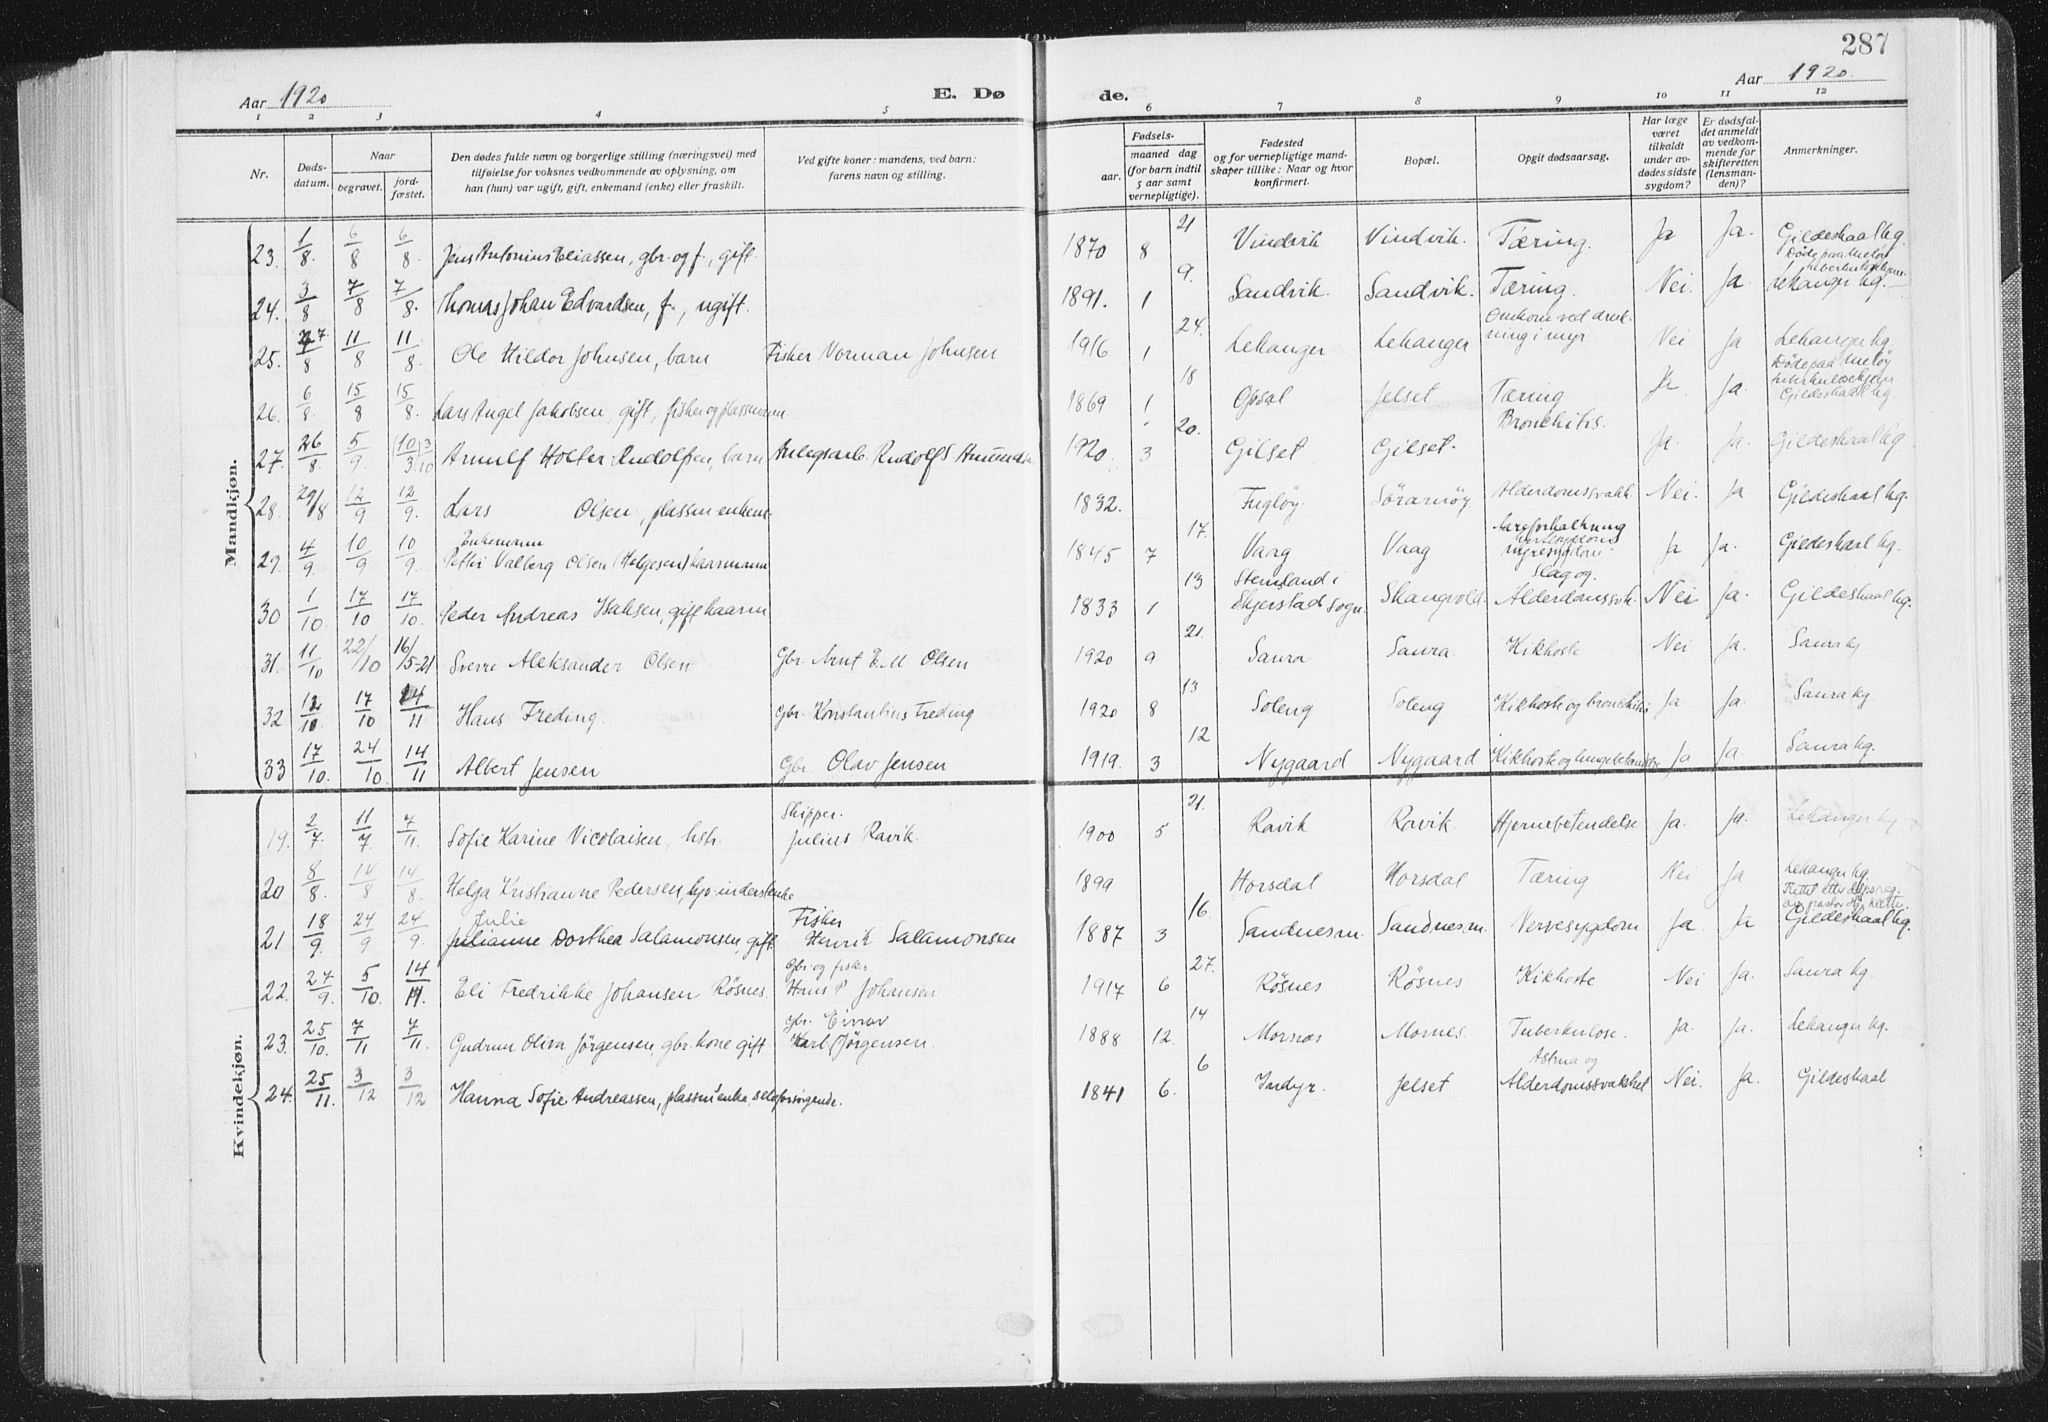 287
Aar 1920
E. Dø
de.
Aar 1920.
1 2 3 4 5 6 7 8 9 10 11 12
Nr.
Døds-
datum.
Naar
begravet.
jord-
fæstet.
Den dødes fulde navn og borgerlige stilling (næringsvei) med
tilføielse for voksnes vedkommende av oplysning, om
han (hun) var ugift, gift, enkemand (enke) eller fraskilt.
Ved gifte koner: mandens, ved barn:
farens navn og stilling.
Fødsels-
aar.
maaned dag
(for barn indtil
5 aar samt
vernepligtige).
Fødested
og for vernepligtige mand-
skaper tillike: Naar og hvor
konfirmert.
Bopæl.
Opgit dødsaarsag.
Har læge
været
tilkaldt
under av-
dødes sidste
sygdom?
Er dødsfal-
det anmeldt
av vedkom-
mende for
skifteretten
(lensman-
den)?
Anmerkninger.
Mandkjøn.
23. 1/8. 6/8 6/8 Jens Antonius Eliassen, gbr. og f., gift. 1870 8 21 Vindvik Vindvik. Tæring. Ja Ja. Gildeskaal kg.
24. 3/8 7/8 7/8. Thomas Johan Edvardsen, f., ugift. 1891. 1 9. Sandvik. Sandvik. Tæring. Nei. Ja Døde paa Meløy
Lekanger kg.
25. /8 11/8 11/8. Ole Hildor Johnsen, barn Fisker Norman Johnsen 1916 1 24. Lekanger Lekanger Omkom ved druk-
ning i myr Nei Ja Lekanger kg.
26. 6/8. 15/8 15/8. Lars Angel Jakobsen, gift, fisker og plassmann 1869 1 18 Opsal Jelset Tæring Ja. Døde paa Meløy
tuberkulosehjem
Gildeskaal kg
27. 26/8 5/9. Arnulf Holter Rudolfsen, barn Anlegsarb. Rudolf 1920. 3 20. Gilset Gilset. Bronchitis. Ja. Ja. Gildeskaal kg.
28. 29/8 12/9 12/9. Lars Olsen, plassm enkem. 1832. Fugløy Sörarnöy Alderdomssvakh. Nei. Ja. Gildeskaal kg.
29. 4/9. 10/9 10/9. Enkemann
Petter Valberg Olsen (Helgesen) kaarmann 1845 7 17. Vaag Vaag Aareforkalkning
hjertesygdom
nyresygdom Ja Ja. Gildeskaal kg.
30 1/10. 17/10 17/10. Peder Andreas Isaksen, gift kaarm 1833 1 13 i
Skjerstad sogn. Skaugvold. Slag og
Alderdomssvk. Nei Ja. Gildeskaal kg.
31. 11/10 22/10 16/5-21 Sverre Aleksander Olsen Gbr. Arnt E. M Olsen 1920 9 21. Saura Saura. Kikhoste Nei Ja. Saura kg
32 12/10 17/10 14/11 Hans Freding. Gbr. Konstantius Freding 1920 8 13 Soleng Soleng Kikhoste og bronchitis Ja Ja. Saura kg.
33 17/10. 24/10. 14/11 Albert Jensen Gbr. Olav Jensen 1919. 3 12 Nygaard Nygaard Kikhoste og lungebetændelse Ja Ja. Saura kg.
Kvindekjøn.
19. 2/7. 11/7 7/11. Sofie Karine Nicolaisen, hstr. Skipper.
Julius Ravik. 1900 5 21. Ravik Ravik. Hjernebetendelse Ja. Ja. Lekanger kg
20 8/8. 14/8 14/8. Helga Kristianne Pedersen, 1899 Horsdal Horsdal Tæring Nei Ja Lekanger kg.
21 18/9. 24/9 24/9. Julie
Julianne Dorthea Salamonsen, gift Fisker
Henrik Salamonsen 1887 3 16. Sandnes m. Sandnes m. Nervesygdom Ja. Ja Gildeskaal kg.
22. 27/9. 5/10. 14/11. Eli Fredrikke Johansen Røsnes. Gbr og fisker
Hans P Johansen. 1917 6 27. Røsnes Røsnes Kikhoste Nei Ja. Saura kg.
23. 25/10. 7/11 7/11. Gudrun Oliva Jörgensen, gbr. kone gift gbr. Einar
Karl Jörgensen. 1888 12. 14 Mornes Mornes. Tuberkulose. Ja. Ja. Lekanger kg.
24. 25/11. 3/12 3/12 Hanna Sofie Andreassen, plassm enke, selvforsörgende. 1841 6. 6 Indyr. Jelset Astma og
Alderdomssvakhet Nei. Ja. Gildeskaal